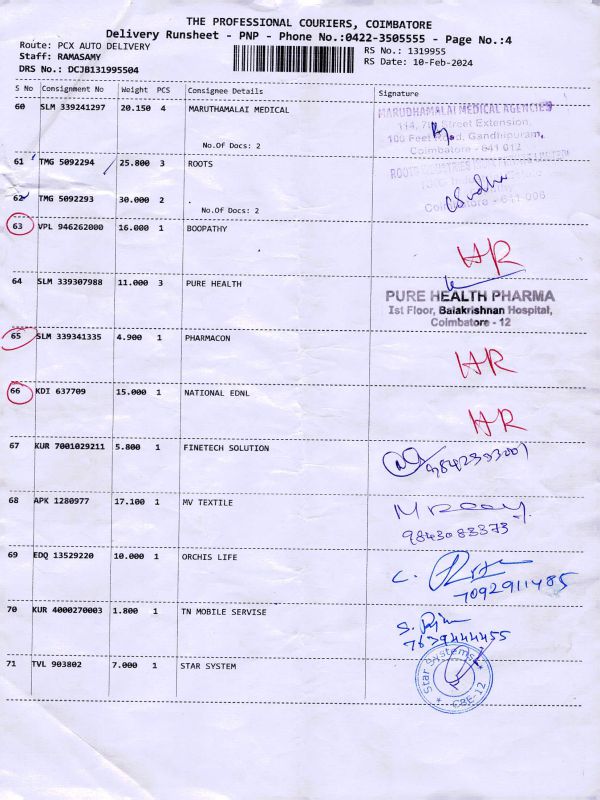 THE PROFESSIONAL COURIERS, COIMBATORE
Delivery Runsheet - PNP - Phone No.:0422-3505555 - Page No.:4
Route: PCX AUTO DELIVERY
Staff: RAMASAMY
DRS No.: DCJB131995504
RS No.: 1319955
RS Date: 10-Feb-2024
S No Consignment No Weight PCS Consignee Details Signature
60 SLM 339241297 20.150 4 MARUTHAMALAI MEDICAL
No.Of Docs: 2
MARUDHAMALAI MEDICAL AGENCIES
114, 7th Street Extension,
100 Feet Road, Gandhipuram,
Coimbatore - 641 012
61 TMG 5092294 25.800 3 ROOTS
62 TMG 5092293 30.000 2
No.Of Docs: 2
Coimbatore - 641 006
63 VPL 946262000 16.000 1 BOOPATHY
HR
64 SLM 339307988 11.000 3 PURE HEALTH
PURE HEALTH PHARMA
Ist Floor, Balakrishnan Hospital,
Coimbatore - 12
65 SLM 339341335 4.900 1 PHARMACON
HR
66 KDI 637709 15.000 1 NATIONAL EDNL
HR
67 KUR 7001029211 5.800 1 FINETECH SOLUTION
68 APK 1280977 17.100 1 MV TEXTILE
9843083373
69 EDQ 13529220 10.000 1 ORCHIS LIFE
7092911485
70 KUR 4000270003 1.800 1 TN MOBILE SERVISE
7639444455
71 TVL 903802 7.000 1 STAR SYSTEM
Star Systems
CBE-12